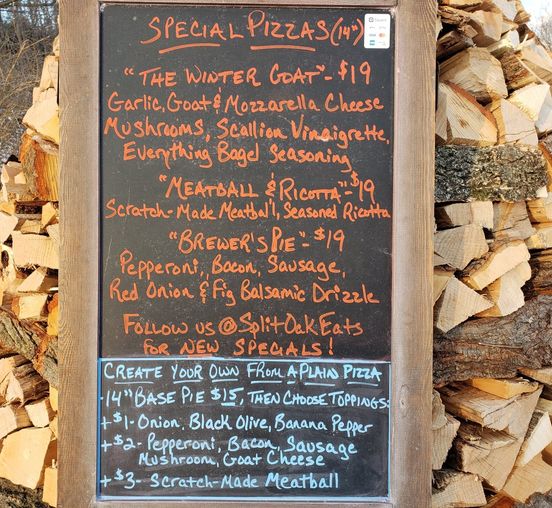 SPECIAL PIZZAS (14")
"THE WINTER GOAT" - $19
Garlic, Goat & Mozzarella Cheese
Mushrooms, Scallion Vinaigrette,
Everything Bagel Seasoning
"MEATBALL & RICOTTA" - $19
Scratch-Made Meatball, Seasoned Ricotta
"BREWER'S PIE" - $19
Pepperoni, Bacon, Sausage,
Red Onion & Fig Balsamic Drizzle
FOLLOW US @SplitOakEats
FOR NEW SPECIALS!
CREATE YOUR OWN FROM A PLAIN PIZZA
-14" BASE PIE $15, THEN CHOOSE TOPPINGS:
+$1- Onion, Black Olive, Banana Pepper
+$2- Pepperoni, Bacon, Sausage
Mushroom, Goat Cheese
+$3- Scratch-Made Meatball